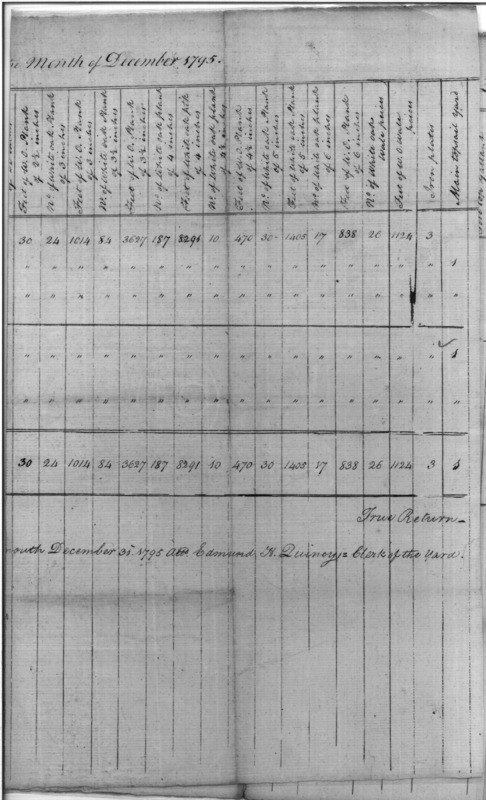 Month of December 1795.
Feet of W.O. Plank of 2½ inches
No. of white oak Plank of 3 inches
Feet of W.O. Plank of 3 inches
No of White oak Plank of 3½ inches
Feet of W.O. Plank of 3½ inches
No of White oak plank of 4 inches
Feet of White oak plk of 4 inches
No of White oak plank of 4½ inches
Feet of W.O. Plank of 4½ inches
No. of White oak Plank of 5 inches
Feet of White oak Plank of 5 inches
No of White oak plank of 6 inches
Feet of W.O. Plank of 6 inches
No. of White oak Wale pieces
Feet of W.O. Wale pieces
Iron plates
Main Yard
30 24 1014 84 3627 187 8291 10 470 30 1405 17 838 26 1124 3
" " " " " " " " " " " " " " " " 1
" " " " " " " " " " " " " " " " "
" " " " " " " " " " " " " " " " 1
" " " " " " " " " " " " " " " " "
30 24 1014 84 3627 187 8291 10 470 30 1405 17 838 26 1124 3 1
True Return
mouth December 31. 1795 Edmund H. Quincy = Clerk of the Yard.